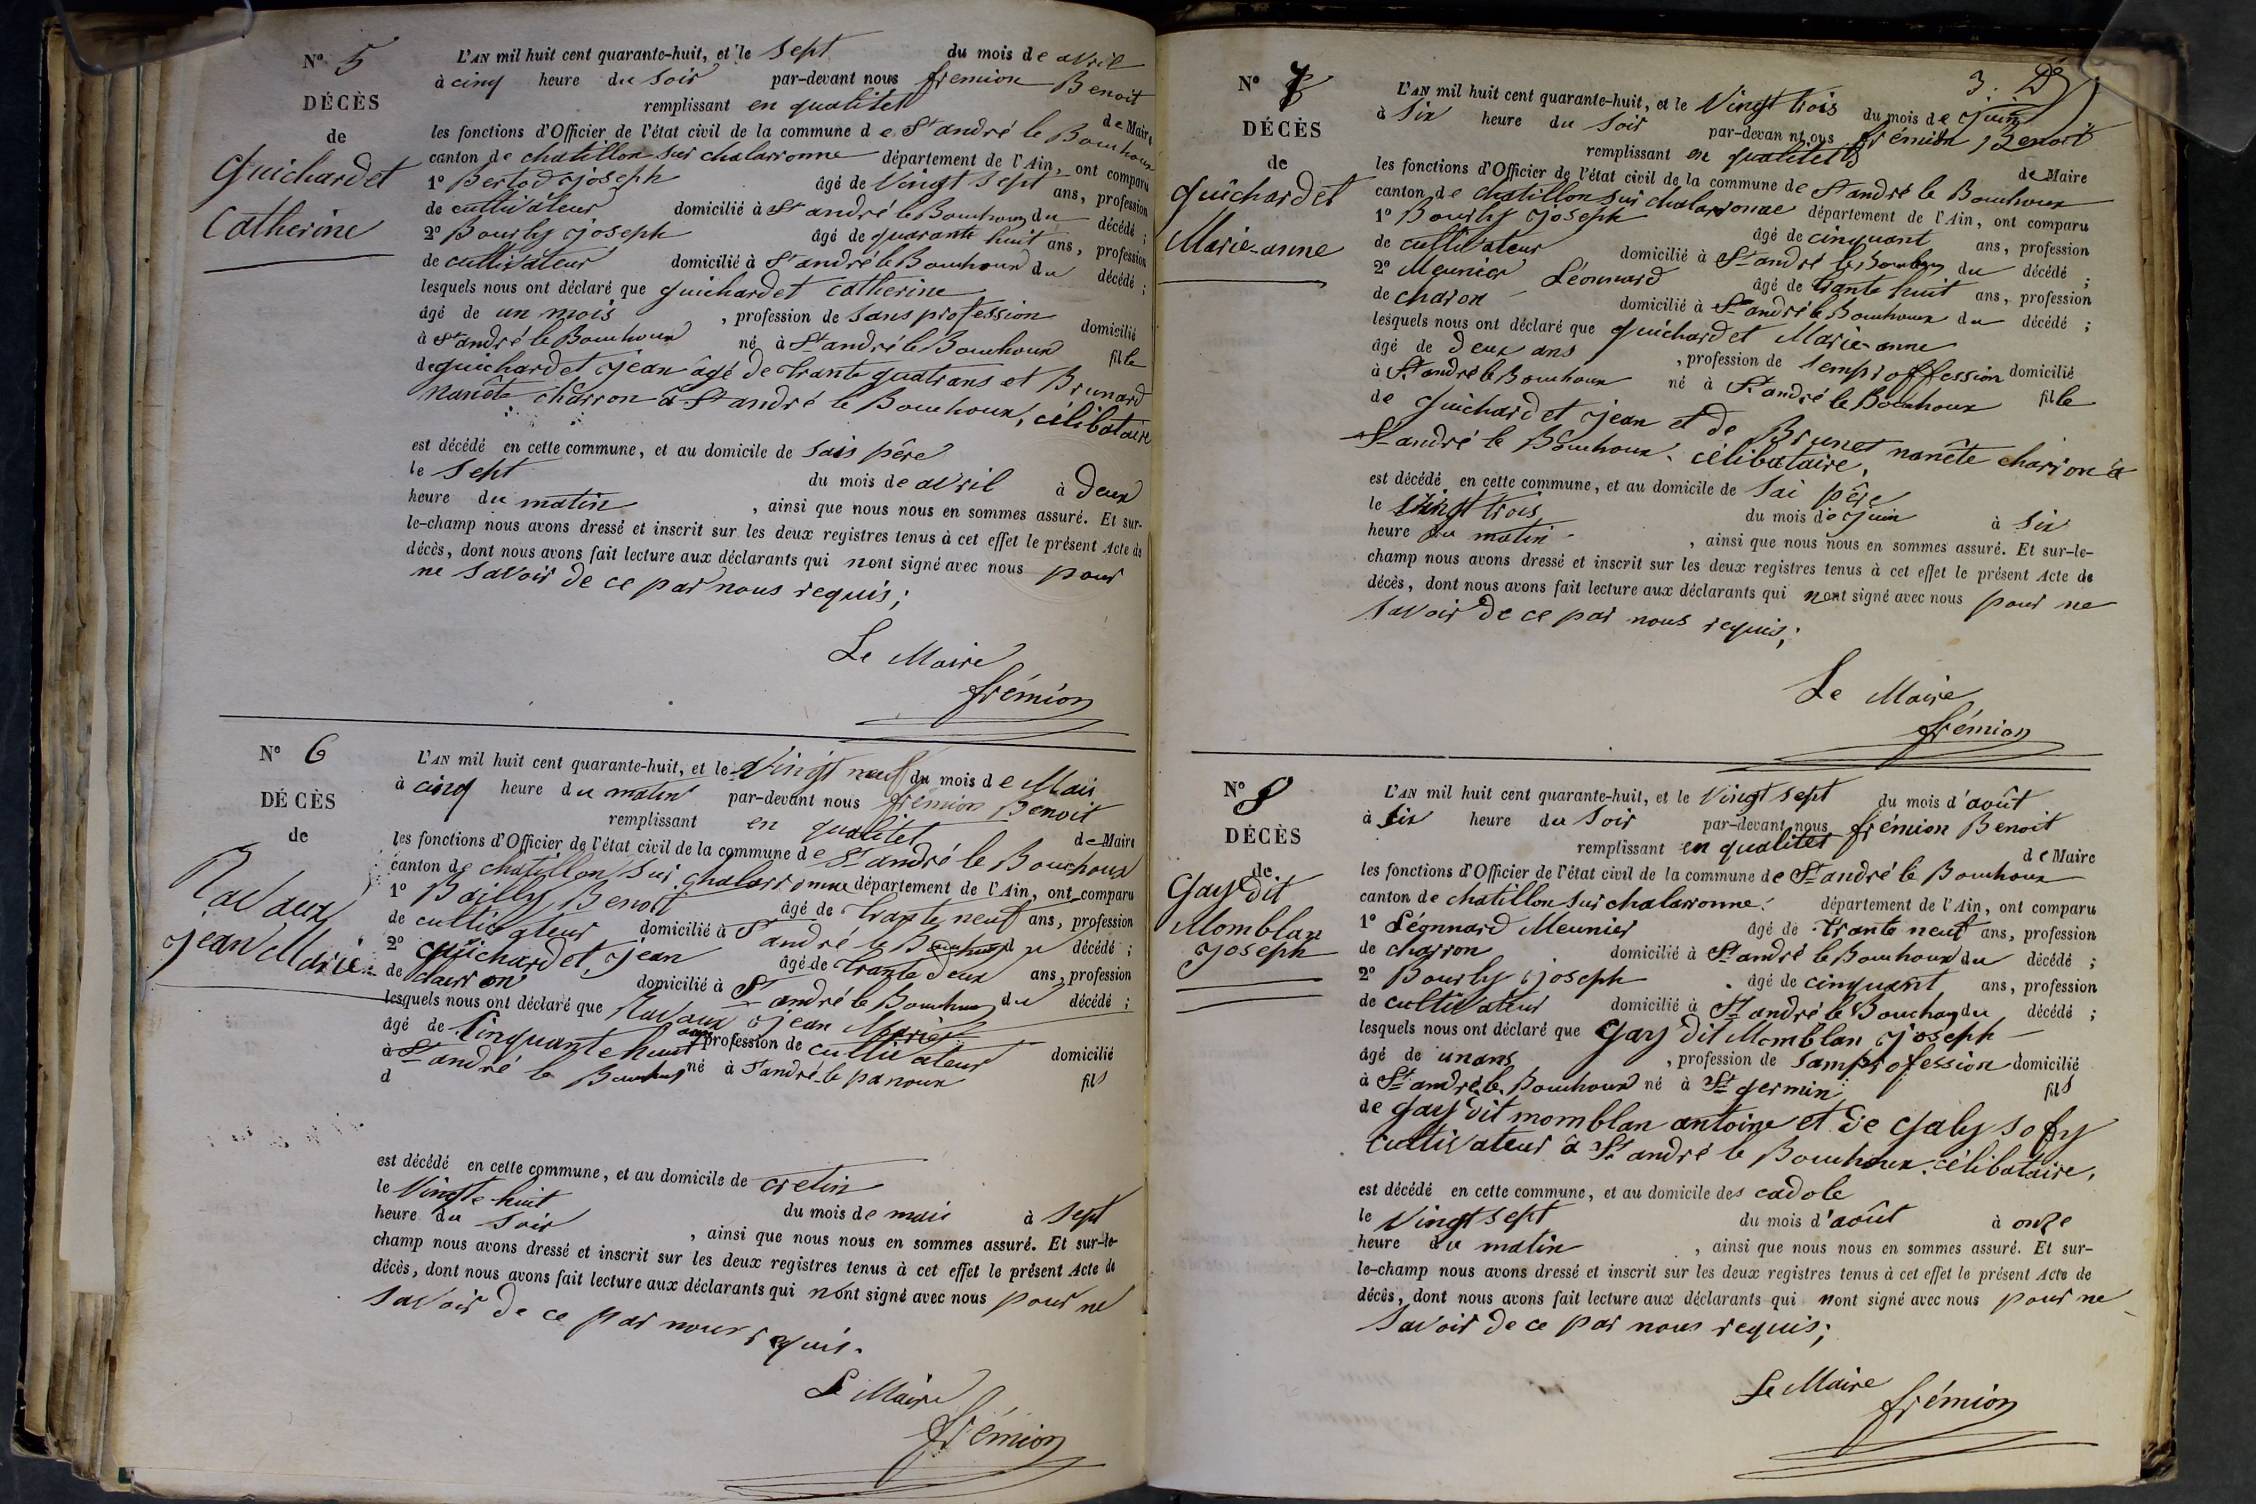 N° 5
DÉCÈS
de
Guichardet
Catherine
L'AN mil huit cent quarante-huit, et le sept du mois de avril
à cinq heure du soir par-devant nous frémion Benoit
remplissant en qualitet de Maire
les fonctions d'Officier de l'état civil de la commune de St andré le Bouchoux
canton de chatillon sur chalarronne département de l'Ain, ont comparu
1° Bertod joseph âgé de vingt sept ans, profession
de cultivateur domicilié à St andré le Bouchoux du décédé ;
2° Bourly joseph âgé de quarante huit ans, profession
de cultivateur domicilié à St andré le Bouchoux du décédé ;
lesquels nous ont déclaré que guichardet catherine
âgé de un mois , profession de sans profession domicilié
à St andré le Bouchoux né à St andré le Bouchoux fille
de guichardet jean âgé de trante quatrans et Brunard
nanète charron à St andré le Bouchoux, célibataire
est décédé en cette commune, et au domicile de sais père
le sept du mois de avril à deux
heure du matin , ainsi que nous nous en sommes assuré. Et sur-
le-champ nous avons dressé et inscrit sur les deux registres tenus à cet effet le présent Acte de
décès, dont nous avons fait lecture aux déclarants qui nont signé avec nous pour
ne savoir de ce par nous requis ;
Le Maire
frémion
N° 6
DÉCÈS
de
Ravaux
jean Marie
L'AN mil huit cent quarante-huit, et le vingt neuf du mois de Mais
à cinq heure du matin par-devant nous frémion Benoit
remplissant en qualitet de Maire
les fonctions d'Officier de l'état civil de la commune de St andré le Bouchoux
canton de chatillon sur chalarronne département de l'Ain, ont comparu
1° Bailly Benoit âgé de trante neuf ans, profession
de cultivateur domicilié à St andré le Bouchoux du décédé ;
2° guichardet jean âgé de trante deux ans, profession
de charron domicilié à St andré le Bouchoux du décédé ;
lesquels nous ont déclaré que Ravaux jean Marie
âgé de cinquante huit ans profession de cultivateur domicilié
à St andré le Bouchoux né à St andré le panoux fils
d
est décédé en cette commune, et au domicile de cretin
le vingte huit du mois de mais à sept
heure du soir , ainsi que nous nous en sommes assuré. Et sur-le-
champ nous avons dressé et inscrit sur les deux registres tenus à cet effet le présent Acte de
décès, dont nous avons fait lecture aux déclarants qui nont signé avec nous pour ne
savoir de ce par nous requis.
Le Maire
frémion
3. D
N° 7
DÉCÈS
de
guichardet
Marie-anne
L'AN mil huit cent quarante-huit, et le vingt trois du mois de juin
à six heure du soir par-devan nt ous frémion Benoit
remplissant en qualitet de Maire
les fonctions d'Officier de l'état civil de la commune de St andré le Bouchoux
canton de chatillon sur chalaronne département de l'Ain, ont comparu
1° Bourly joseph âgé de cinquant ans, profession
de cultivateur domicilié à St andré le Bouchoux du décédé ;
2° Meunier Léonnard âgé de trante huit ans, profession
de charon domicilié à St andré le Bouchoux du décédé ;
lesquels nous ont déclaré que guichardet Marie-anne
âgé de deux ans , profession de semproffession domicilié
à St andré le Bouchoux né à St andré le Bouchoux fille
de guichardet jean et de Brunet nanète charron à
St andré le Bouchoux. célibataire,
est décédé en cette commune, et au domicile de sai père
le vingt trois du mois de juin à six
heure du matin , ainsi que nous nous en sommes assuré. Et sur-le-
champ nous avons dressé et inscrit sur les deux registres tenus à cet effet le présent Acte de
décès, dont nous avons fait lecture aux déclarants qui nont signé avec nous pour ne
savoir de ce par nous requis ;
Le Maire
frémion
N° 8
DÉCÈS
de
Gay dit
Momblan
joseph
L'AN mil huit cent quarante-huit, et le vingt sept du mois d'août
à six heure du soir par-devant nous frémion Benoit
remplissant en qualitet de Maire
les fonctions d'Officier de l'état civil de la commune de St andré le Bouchoux
canton de chatillon sur chalarronne. département de l'Ain, ont comparu
1° Léonnard Meunier âgé de trante neuf ans, profession
de charron domicilié à St andré le Bouchoux du décédé ;
2° Bourly joseph âgé de cinquant ans, profession
de cultivateur domicilié à St andré le Bouchoux du décédé ;
lesquels nous ont déclaré que Gay dit Momblan joseph
âgé de unans , profession de samprofession domicilié
à St andré le Bouchoux né à St germin fils
de gay dit momblan antoine et de galy sofy
cultivateur à St andré le Bouchoux. célibataire,
est décédé en cette commune, et au domicile des cadole
le vingt sept du mois d'août à onze
heure du matin , ainsi que nous nous en sommes assuré. Et sur-
le-champ nous avons dressé et inscrit sur les deux registres tenus à cet effet le présent Acte de
décès, dont nous avons fait lecture aux déclarants qui nont signé avec nous pour ne
savoir de ce par nous requis ;
Le Maire
frémion